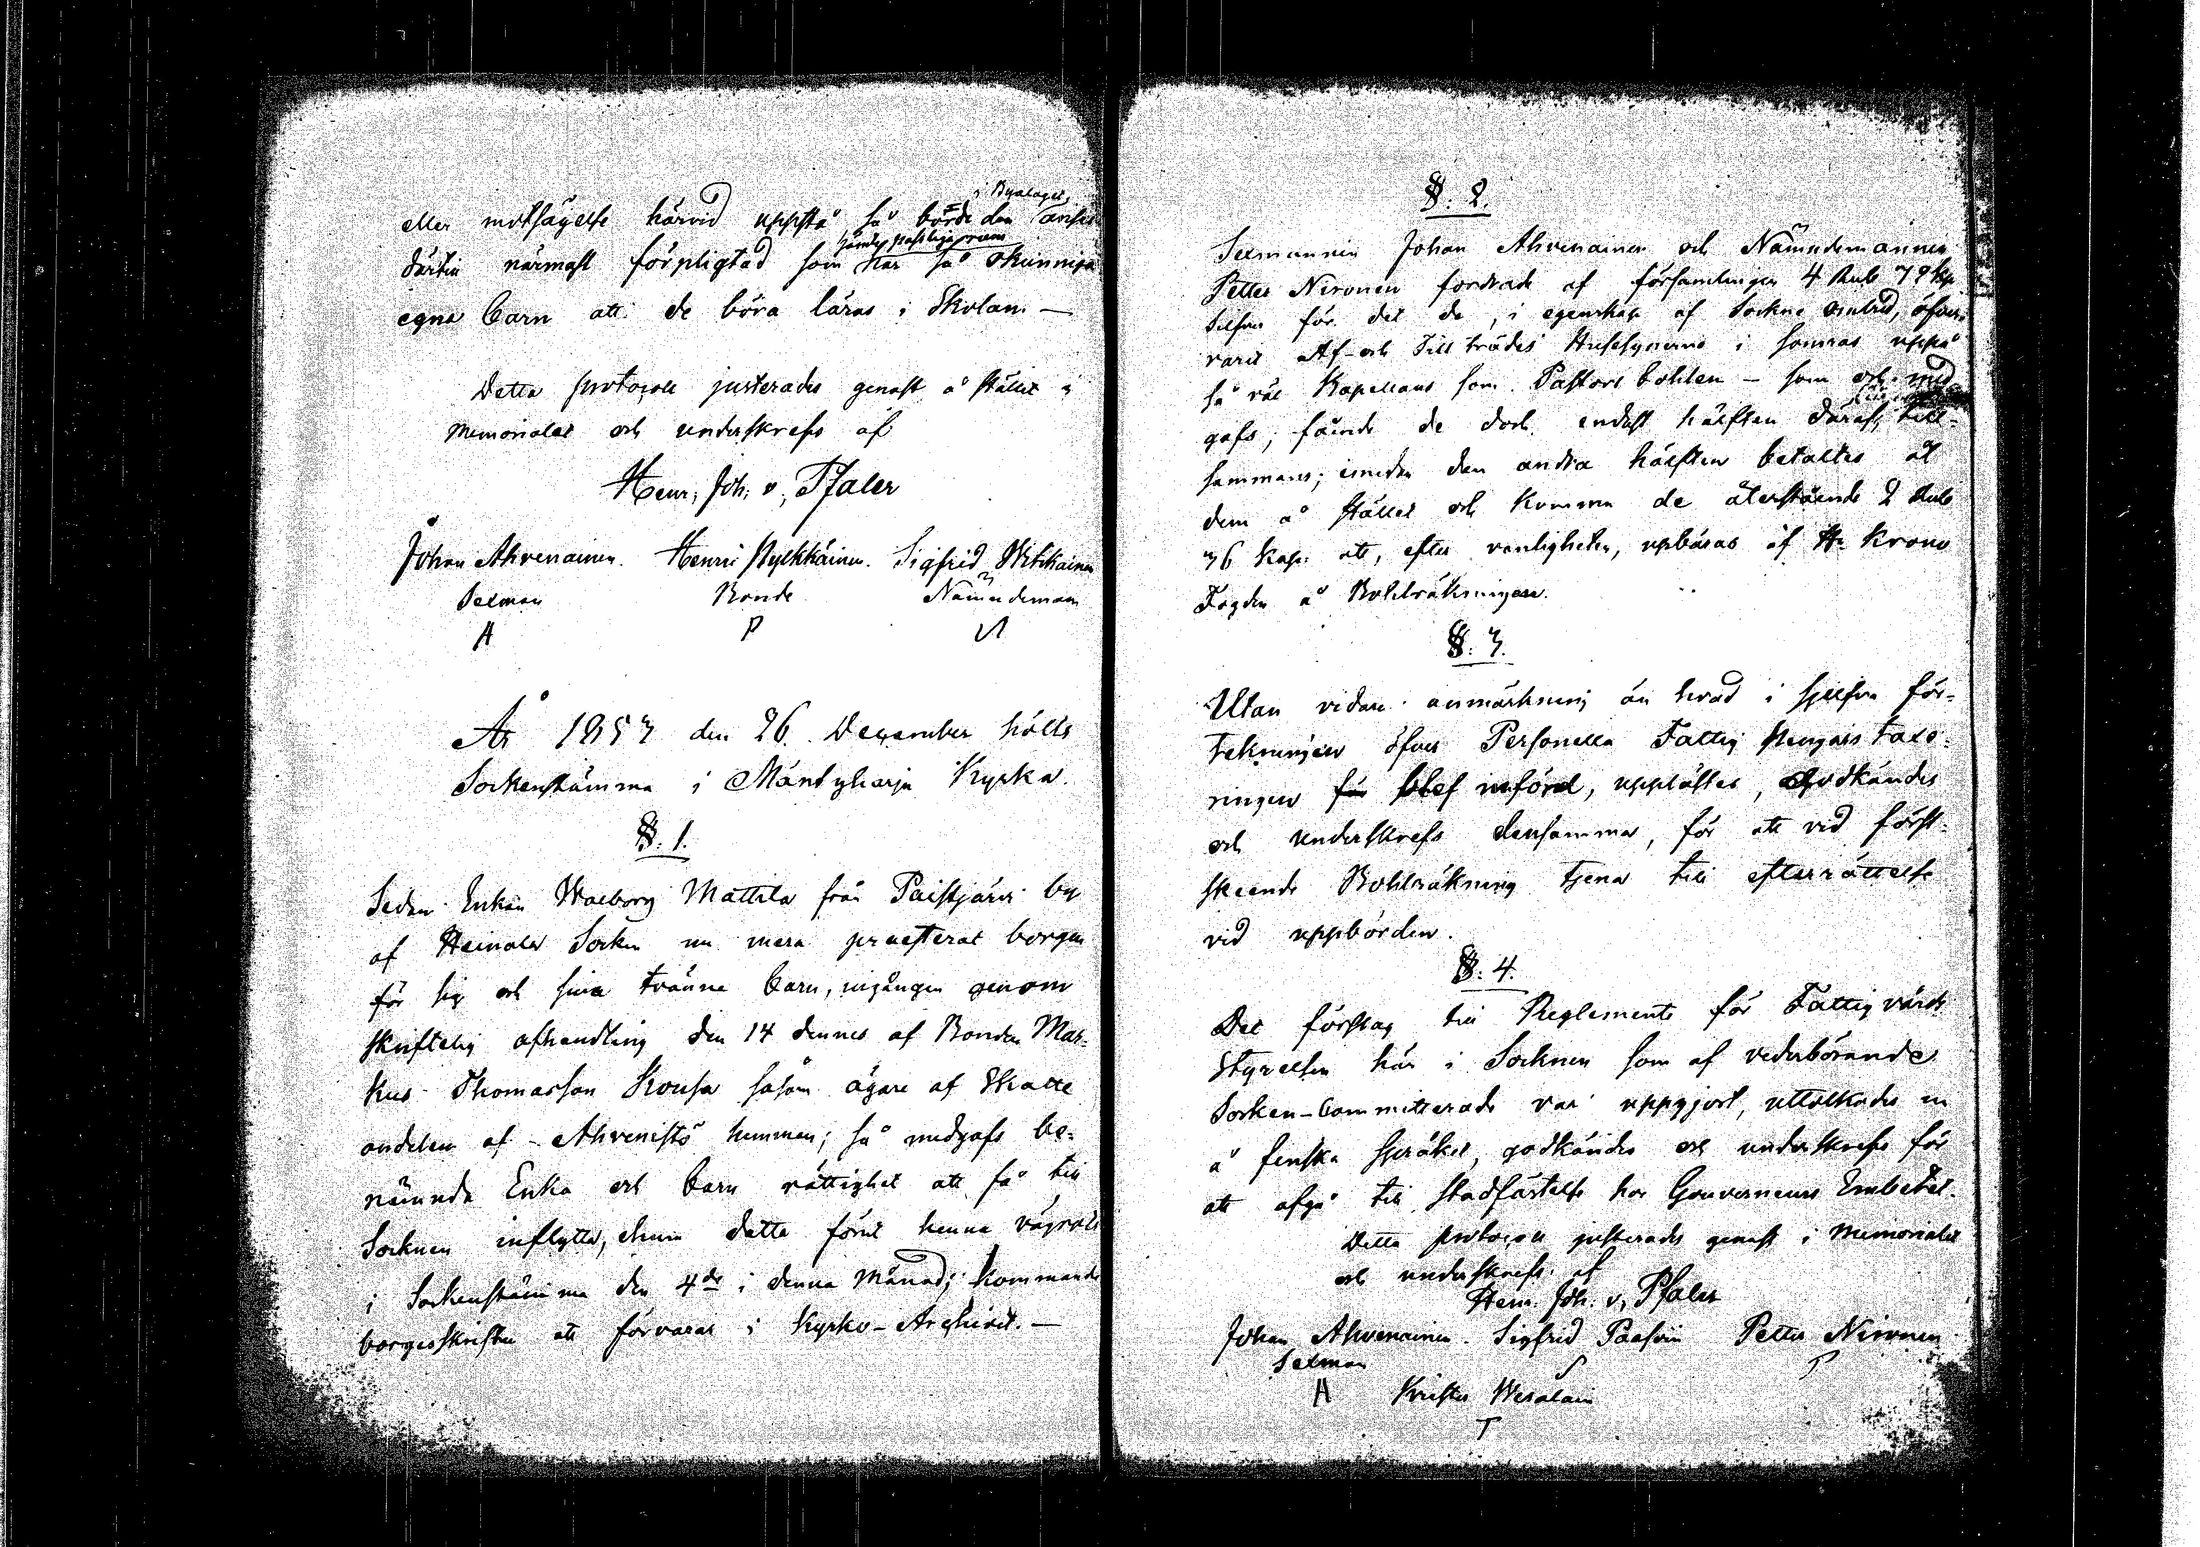 i Byalaget,
eller motsägelse härvid uppstå så borde den anses
därtill närmast förpligtad som har så okunniga
egna barn att de böra läras i Skolan. —
Detta protocoll justerades genast å stället i
memorialet och underskrefs af
Henr. Joh. v. Pfaler
Johan Ahvenainen. Henric Pylkkäinen. Sigfrid Witikainen
Sexman Bonde Nämndeman
A P
År 1853 den 26. December hölls
Sockenstämma i Mändyharju Kyrka.
§. 1.
Sedan Enkan Walborg Mattila från Paistjärvi by
af Heinola Socken nu mera praesterat borgen
för sig och sina tvänne barn, ingången genom
skriftelig afhandling den 14 dennes af Bonden Mar-
kus Thomasson Kousa såsom ägare af Skatte
andelen af Ahvenistö hemman; så medgafs be-
nämnda Enka och barn rättighet att få till
Socknen inflytta, ehuru detta förut henne vägrats
i Sockenstämma den 4de i denna Månad; kommande
borgesskriften att förvaras i Kyrko-Archivet. —
§. 2.
Sexmannen Johan Ahvenainen och Nämndemannen
Petter Nironen fordrade af församlingen 4 Rub 72 kop
silfver för det de, i egenskap af Sockne ombud, öfver-
varit Af- och Tillträdes Husesynerna i somras uppå
så väl Kapellans som Pastors bohlen – som och med
gafs; dock endast hälften däraf, till-
sammans; emedan den andra hälften betaltes åt
dem å stället och komma de återstående 2 Rub
36 kop. att, efter vanligheten, upbäras af Hr Krono
Fogden å Bohlräkningen.
§. 3.
Utan vidare anmärkning än hvad i sjelfva för-
tekningen öfver Personella Fattig Pengars taxe-
ringen blef införd, upplästes, godkändes
och underskrefs densamma, för att vid först-
skeende Bohlräkning tjena till efterrättelse
vid uppbörden.
§. 4.
Det förslag till Reglemente för Fattigvårds
Styrelsen här i Socknen som af vederbörande
Socken-Committerade var uppgjort, uttolkades nu
å finska språket, godkändes och underskrefs för
att afgå till stadfästelse hos Gouverneurs Embetet.
Detta protocoll justerades genast i Memorialet
och underskrefs af
Henr. Joh. v. Pfaler
Johan Ahvenainen. Sigfrid Paasoin Petter Nironen
Sexman
A Krister Wesalain
T